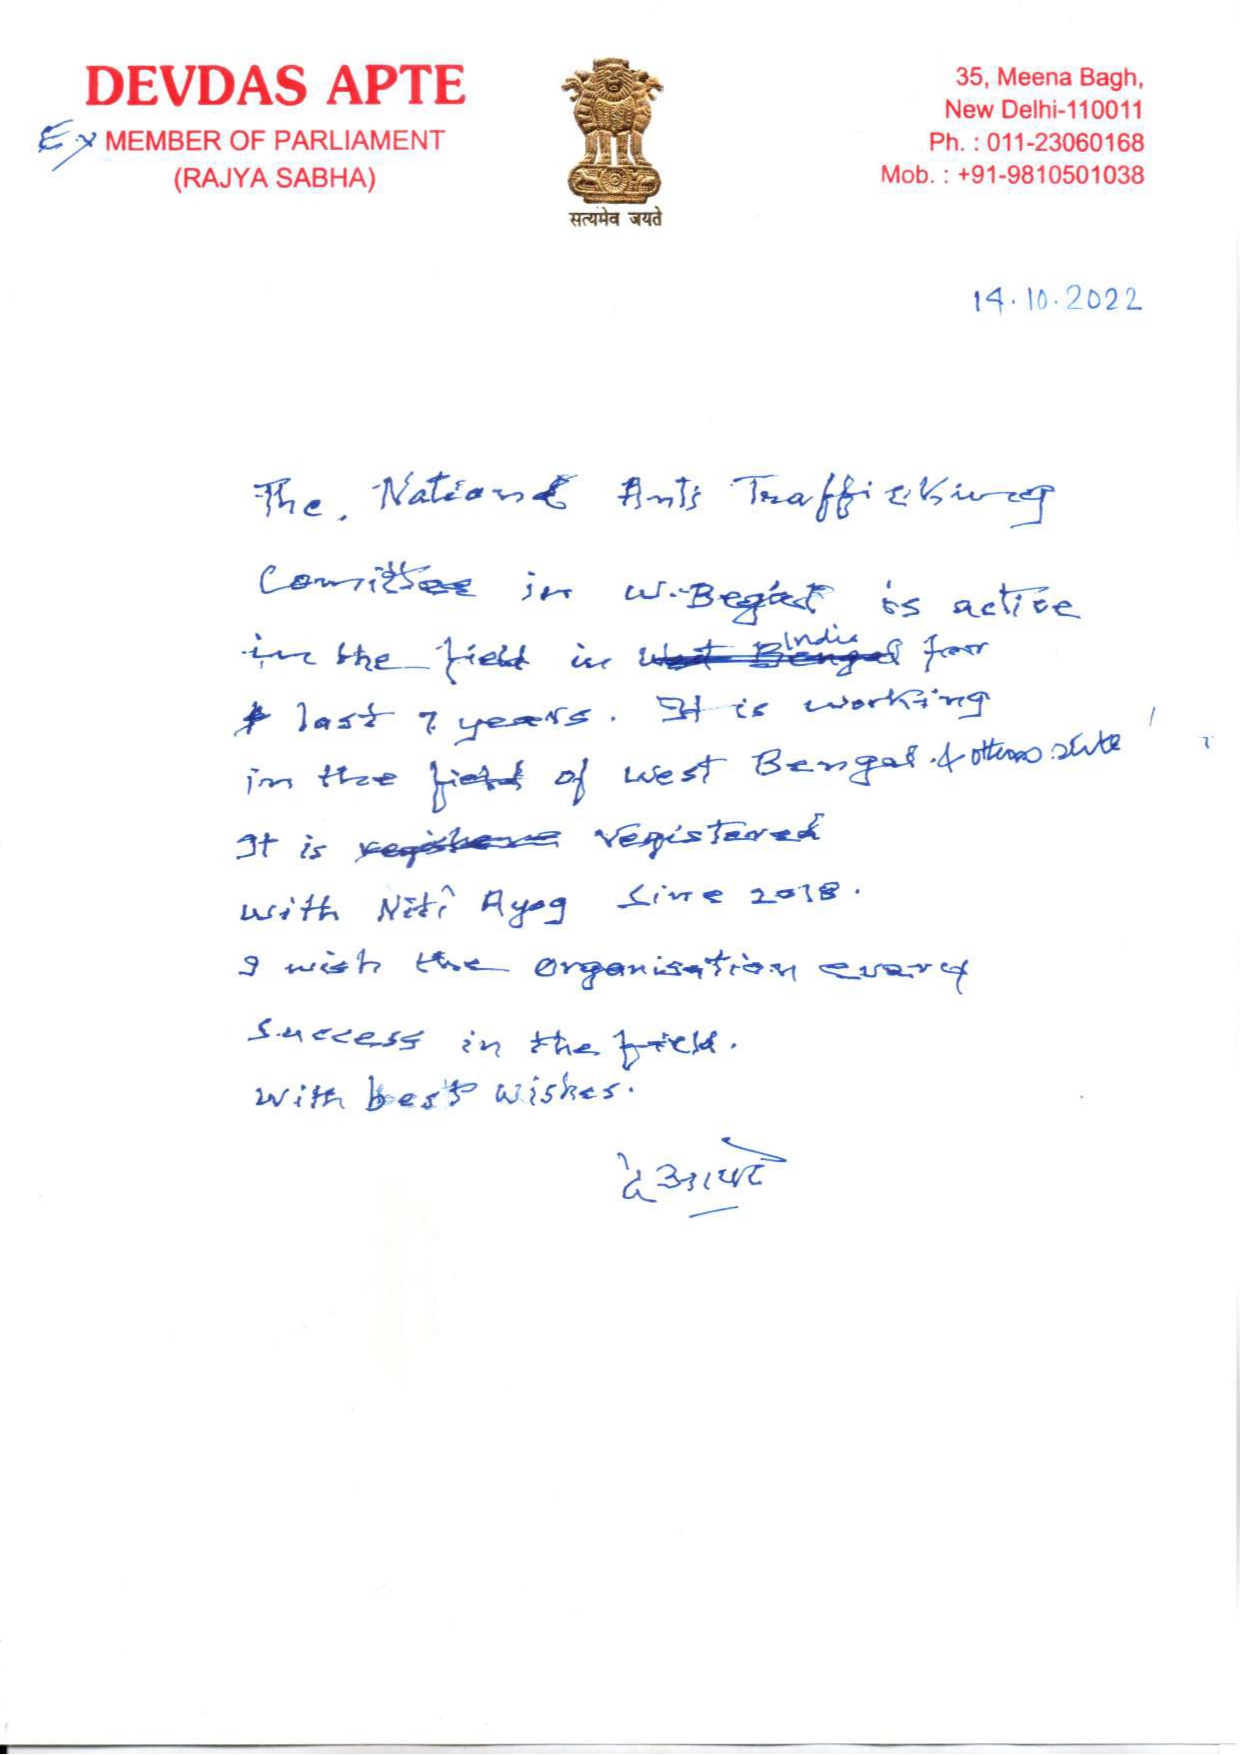 DEVDAS APTE
Ex MEMBER OF PARLIAMENT
(RAJYA SABHA)
सत्यमेव जयते
35, Meena Bagh,
New Delhi-110011
Ph. : 011-23060168
Mob. : +91-9810501038
14.10.2022
The. National Anti Trafficking
Comittee in W.Begal is active
in the field in West Bengal India for
last 7 years. It is working
in the field of West Bengal & others state
It is registered
with Niti Ayog Sine 2018.
I wish the organisation every
success in the field.
with best wishes.
दे आपटे